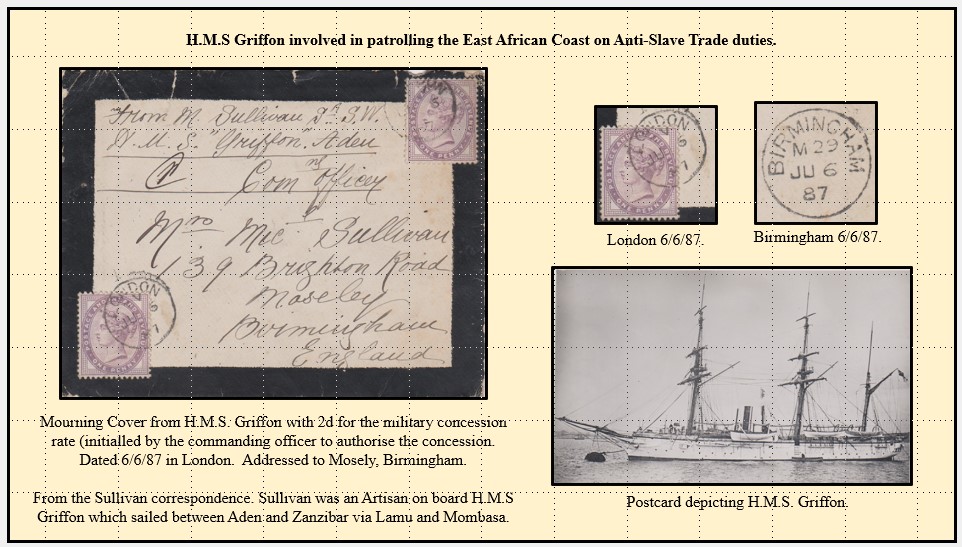 H.M.S Griffon involved in patrolling the East African Coast on Anti-Slave Trade duties.
From M. Sullivan
H. M. S. "Griffon". Aden
Com ng Officer
Mrs Mic. Sullivan
139 Brighton Road
Moseley
Birmingham
England
LONDON
POSTAGE AND INLAND REVENUE
ONE PENNY
London 6/6/87.
BIRMINGHAM
M 29
JU 6
87
Birmingham 6/6/87.
Mourning Cover from H.M.S. Griffon with 2d for the military concession
rate (initialled by the commanding officer to authorise the concession.
Dated 6/6/87 in London. Addressed to Mosely, Birmingham.
From the Sullivan correspondence. Sullivan was an Artisan on board H.M.S
Griffon which sailed between Aden and Zanzibar via Lamu and Mombasa.
Postcard depicting H.M.S. Griffon.